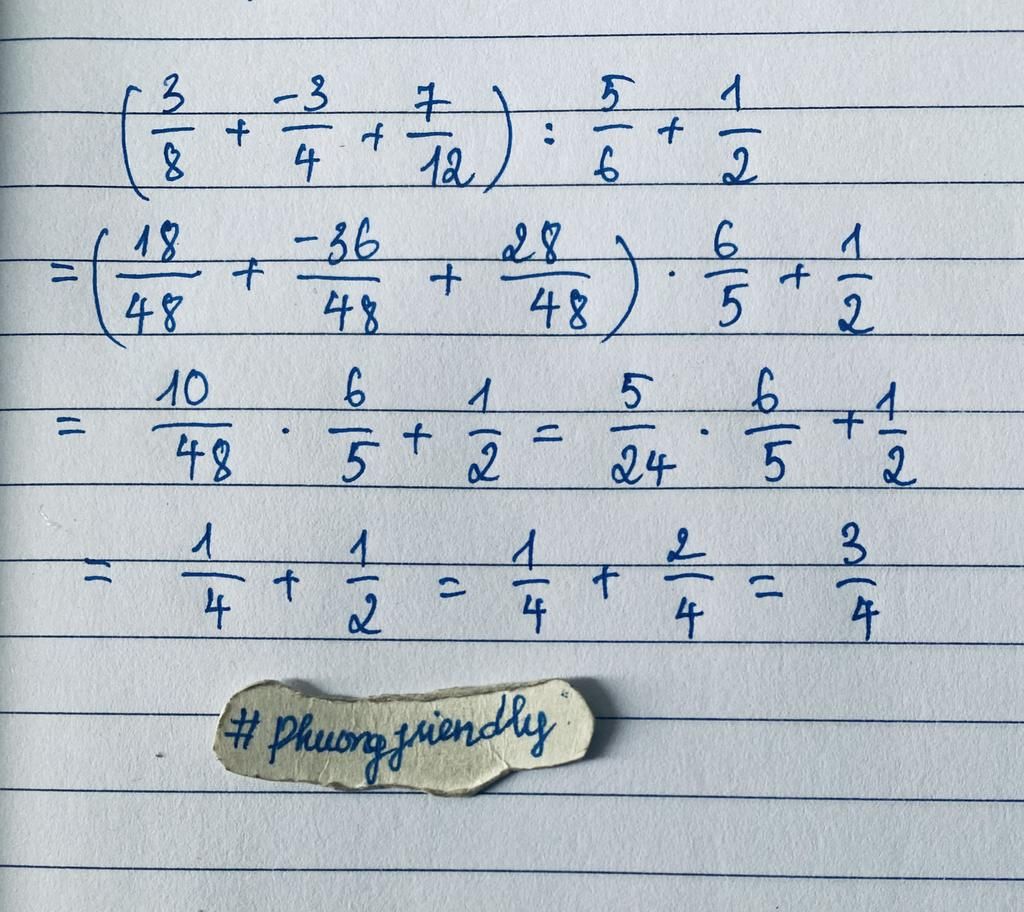 (3/8 + -3/4 + 7/12) : 5/6 + 1/2
= (18/48 + -36/48 + 28/48) . 6/5 + 1/2
= 10/48 . 6/5 + 1/2 = 5/24 . 6/5 + 1/2
= 1/4 + 1/2 = 1/4 + 2/4 = 3/4
#phuongfriendly